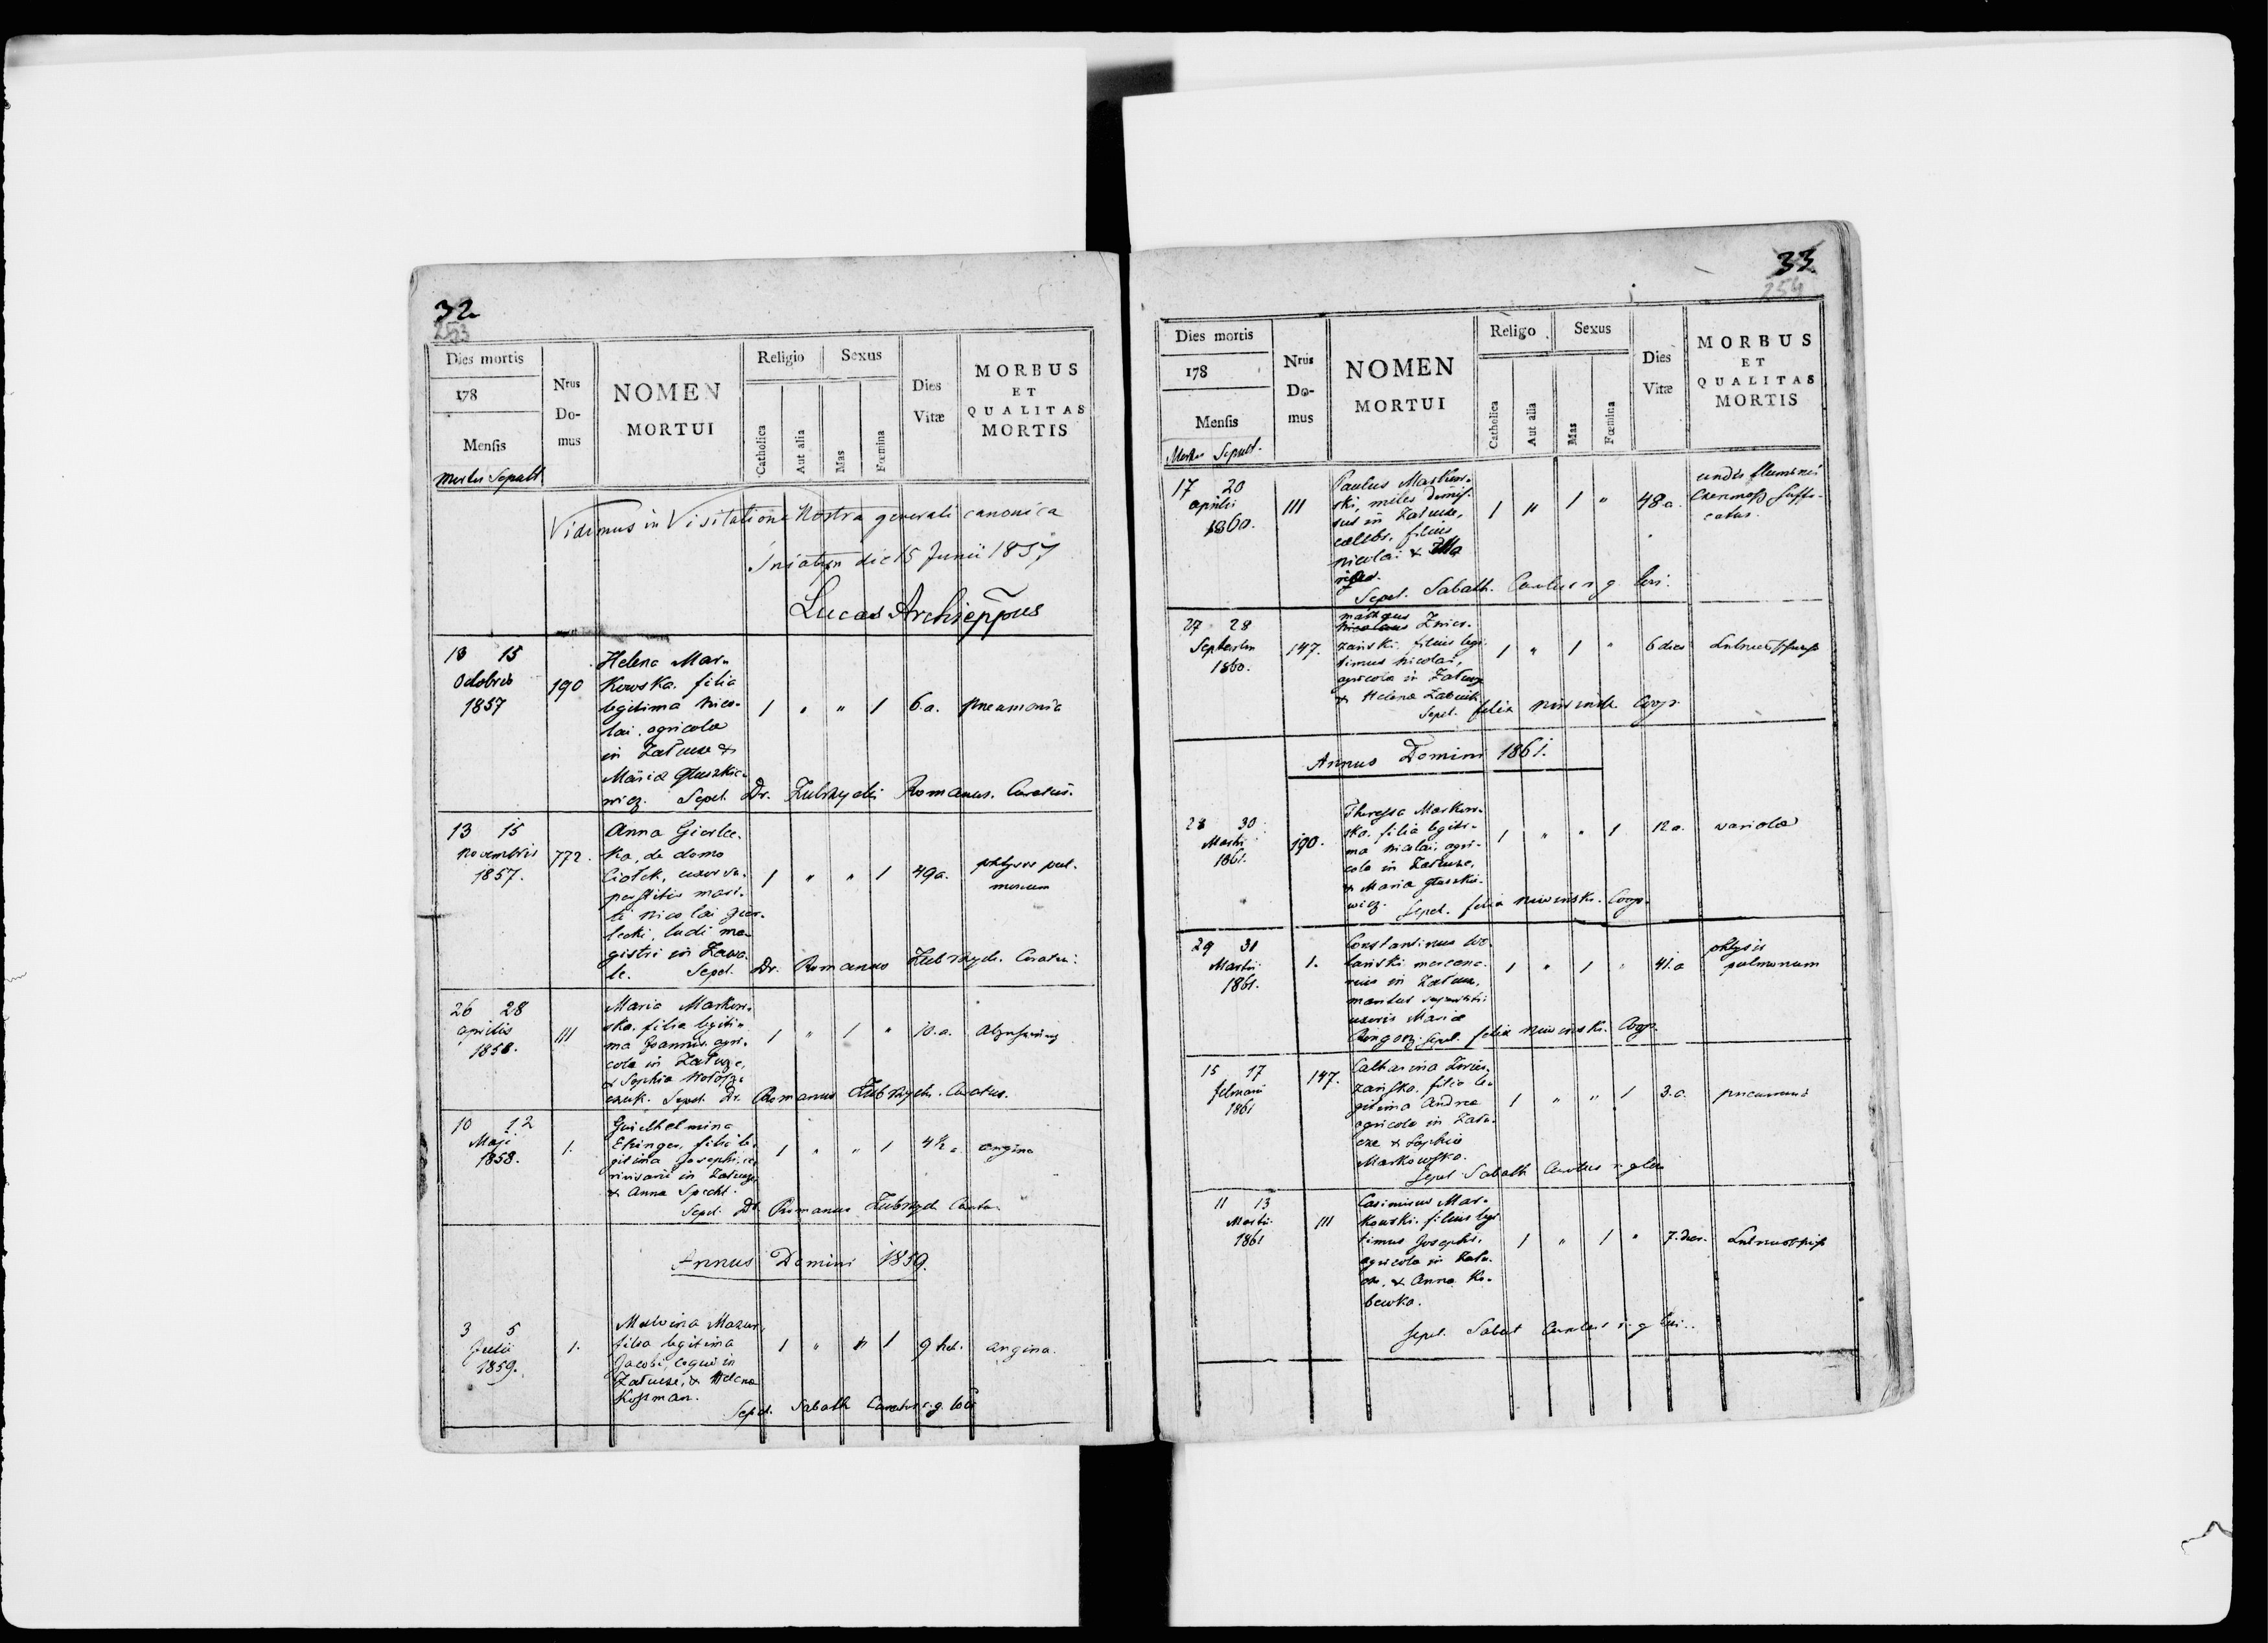 32
253
Dies mortis
178
Mensis
Mortis Sepult.
Nrus
Do-
mus
NOMEN
MORTUI
Religio
Catholica
Aut alia
Sexus
Mas
Fœmina
Dies
Vitæ
MORBUS
ET
QUALITAS
MORTIS
Vidimus in Visitatione Nostra generali canonica
Sniatyn die 15 Junii 1857
Lucas Archieppus
13 15
Octobris
1857
190
Helena Mar-
kowska. filia
legitima Nico-
lai. agricola
in Załucze &
Maria Głuszkie-
wicz. Sepel. Dr. Zubrzycki Romanus. Curatus.
1 " " 1
6.a.
pneumonia
13 15
Novembris
1857.
772.
Anna Gierlec-
ka, de domo
Ciołek, uxor su-
perstitis mari-
ti Nicolai Gier-
lecki, ludi ma-
gistri in Zawa-
le. Sepel. Dr. Romanus Zubrzycki. Curatus.
1 " " 1
49a.
phtysis pul-
monum
26 28
Aprilis
1858.
111
Maria Markow-
ska. filia legiti-
ma Joannis. agri-
cola in Załucze,
& Sophia Wołosz-
czuk. Sepel. Dr. Romanus Zubrzycki. Curatus.
1 " 1 "
10.a.
10 12
Maji
1858.
1.
Guilhelmina
Ehinger, filia le-
gitima Josephi,
in Załucze
& Anna Specht.
Sepel. Dr. Romanus Zubrzycki Curatus
1 " " 1
4½ a.
angina
Annus Domini 1859.
3 5
Julii
1859.
1.
Malvina Mazur,
filia legitima
Jacobi, coqui in
Załucze, & Helena
Kossman.
Sepel. Sabath Curatus r. g. loci
1 " " 1
9 heb.
angina.
33
254
Dies mortis
178
Mensis
Mortis Sepult.
Nrus
Do-
mus
NOMEN
MORTUI
Religo
Catholica
Aut alia
Sexus
Mas
Fœmina
Dies
Vitæ
MORBUS
ET
QUALITAS
MORTIS
17 20
Aprilis
1860.
111
Paulus Markow-
ski, miles dimis-
sus in Załucze,
cælebs, filius
Nicolai & Ma
riæ.
Sepel. Sabath. Curatus r. g. loci.
1 " 1 "
48 a.
undis fluminis
Czeremosz suffo-
catus.
27 28
Septembr
1860.
147.
Matheus
Nicolaus Zwier-
zański. filius legi-
timus Nicolai,
agricola in Załucze
& Helena
Sepel. felix Niwinski. Coop.
1 " 1 "
6 dies
Annus Domini 1861.
28 30
Martii
1861.
190.
Theressa Markow-
ska. filia legiti-
ma Nicolai, agri-
cola in Załucze,
& Maria Głuszkie-
wicz. Sepel. felix Niwinski. Coop.
1 " " 1
12 a.
variola
29 31
Martii
1861.
1.
Constantinus Wo-
lański mercena-
rius in Załucze,
maritus superstitis
uxoris Maria
Sepel. felix Niwinski. Coop.
1 " 1 "
41.a
phtysis
pulmonum
15 17
februarii
1861
147.
Catharina Zwier-
zańska. filia le-
gitima Andrea
agricola in Zału-
cze & Sophia
Markowska.
Sepel Sabath Curatus r. g. loci
1 " " 1
3.a.
pneumonia
11 13
Martii
1861
111
Casimirus Mar-
kowski. filius legi
timus Josephi,
agricola in Zału-
cze, & Anna Ko-
bewka.
Sepel. Sabat Curatus r. g. loci..
1 " 1 "
7. dies.